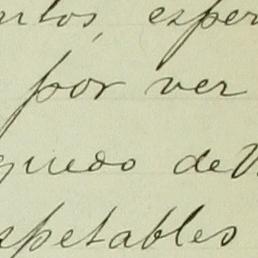 ntos, esper
por ver
quedo de V
spetables